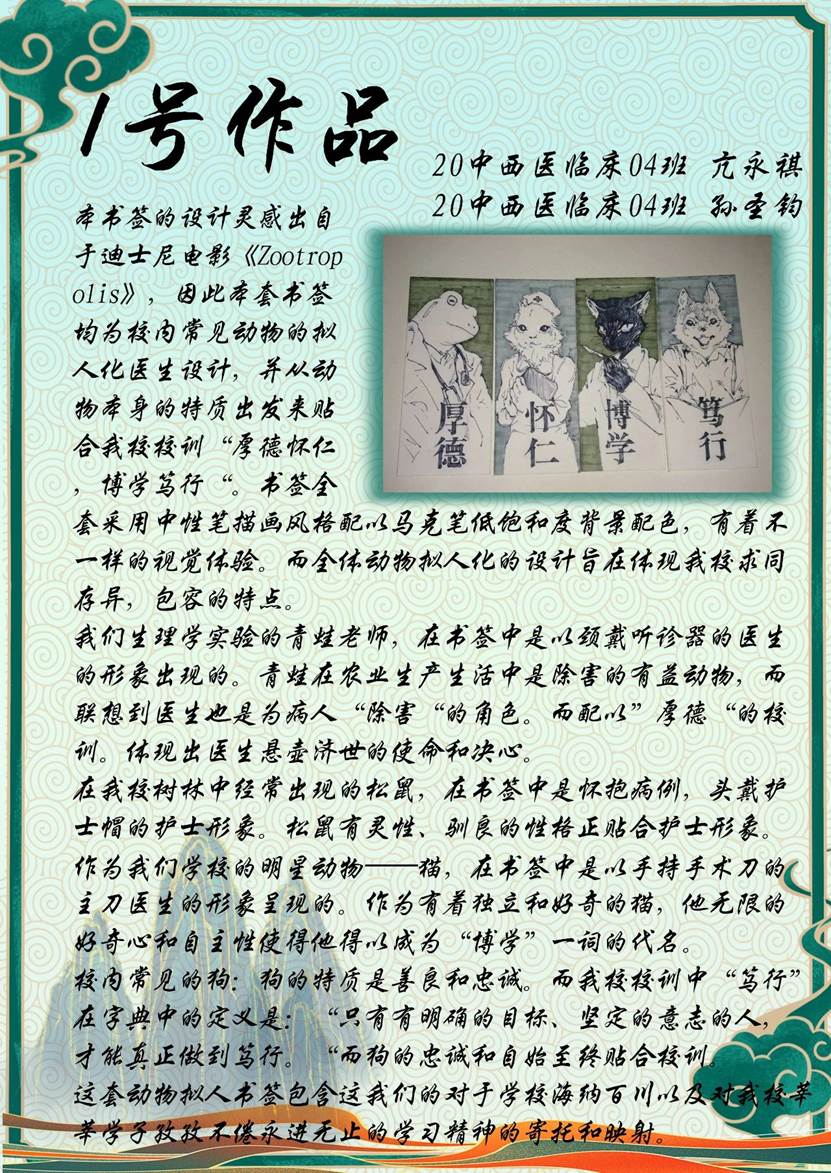 1号作品
20中西医临床04班 亢永祺
20中西医临床04班 孙圣钧
本书签的设计灵感出自
于迪士尼电影《Zootrop
olis》，因此本套书签
均为校内常见动物的拟
人化医生设计，并从动
物本身的特质出发来贴
合我校校训“厚德怀仁
，博学笃行“。书签全
厚德
怀仁
博学
笃行
套采用中性笔描画风格配以马克笔低饱和度背景配色，有着不
一样的视觉体验。而全体动物拟人化的设计旨在体现我校求同
存异，包容的特点。
我们生理学实验的青蛙老师，在书签中是以颈戴听诊器的医生
的形象出现的。青蛙在农业生产生活中是除害的有益动物，而
联想到医生也是为病人“除害“的角色。而配以”厚德“的校
训。体现出医生悬壶济世的使命和决心。
在我校树林中经常出现的松鼠，在书签中是怀抱病例，头戴护
士帽的护士形象。松鼠有灵性、驯良的性格正贴合护士形象。
作为我们学校的明星动物——猫，在书签中是以手持手术刀的
主刀医生的形象呈现的。作为有着独立和好奇的猫，他无限的
好奇心和自主性使得他得以成为“博学”一词的代名。
校内常见的狗：狗的特质是善良和忠诚。而我校校训中“笃行”
在字典中的定义是：“只有有明确的目标、坚定的意志的人，
才能真正做到笃行。“而狗的忠诚和自始至终贴合校训。
这套动物拟人书签包含这我们的对于学校海纳百川以及对我校莘
莘学子孜孜不倦永进无止的学习精神的寄托和映射。